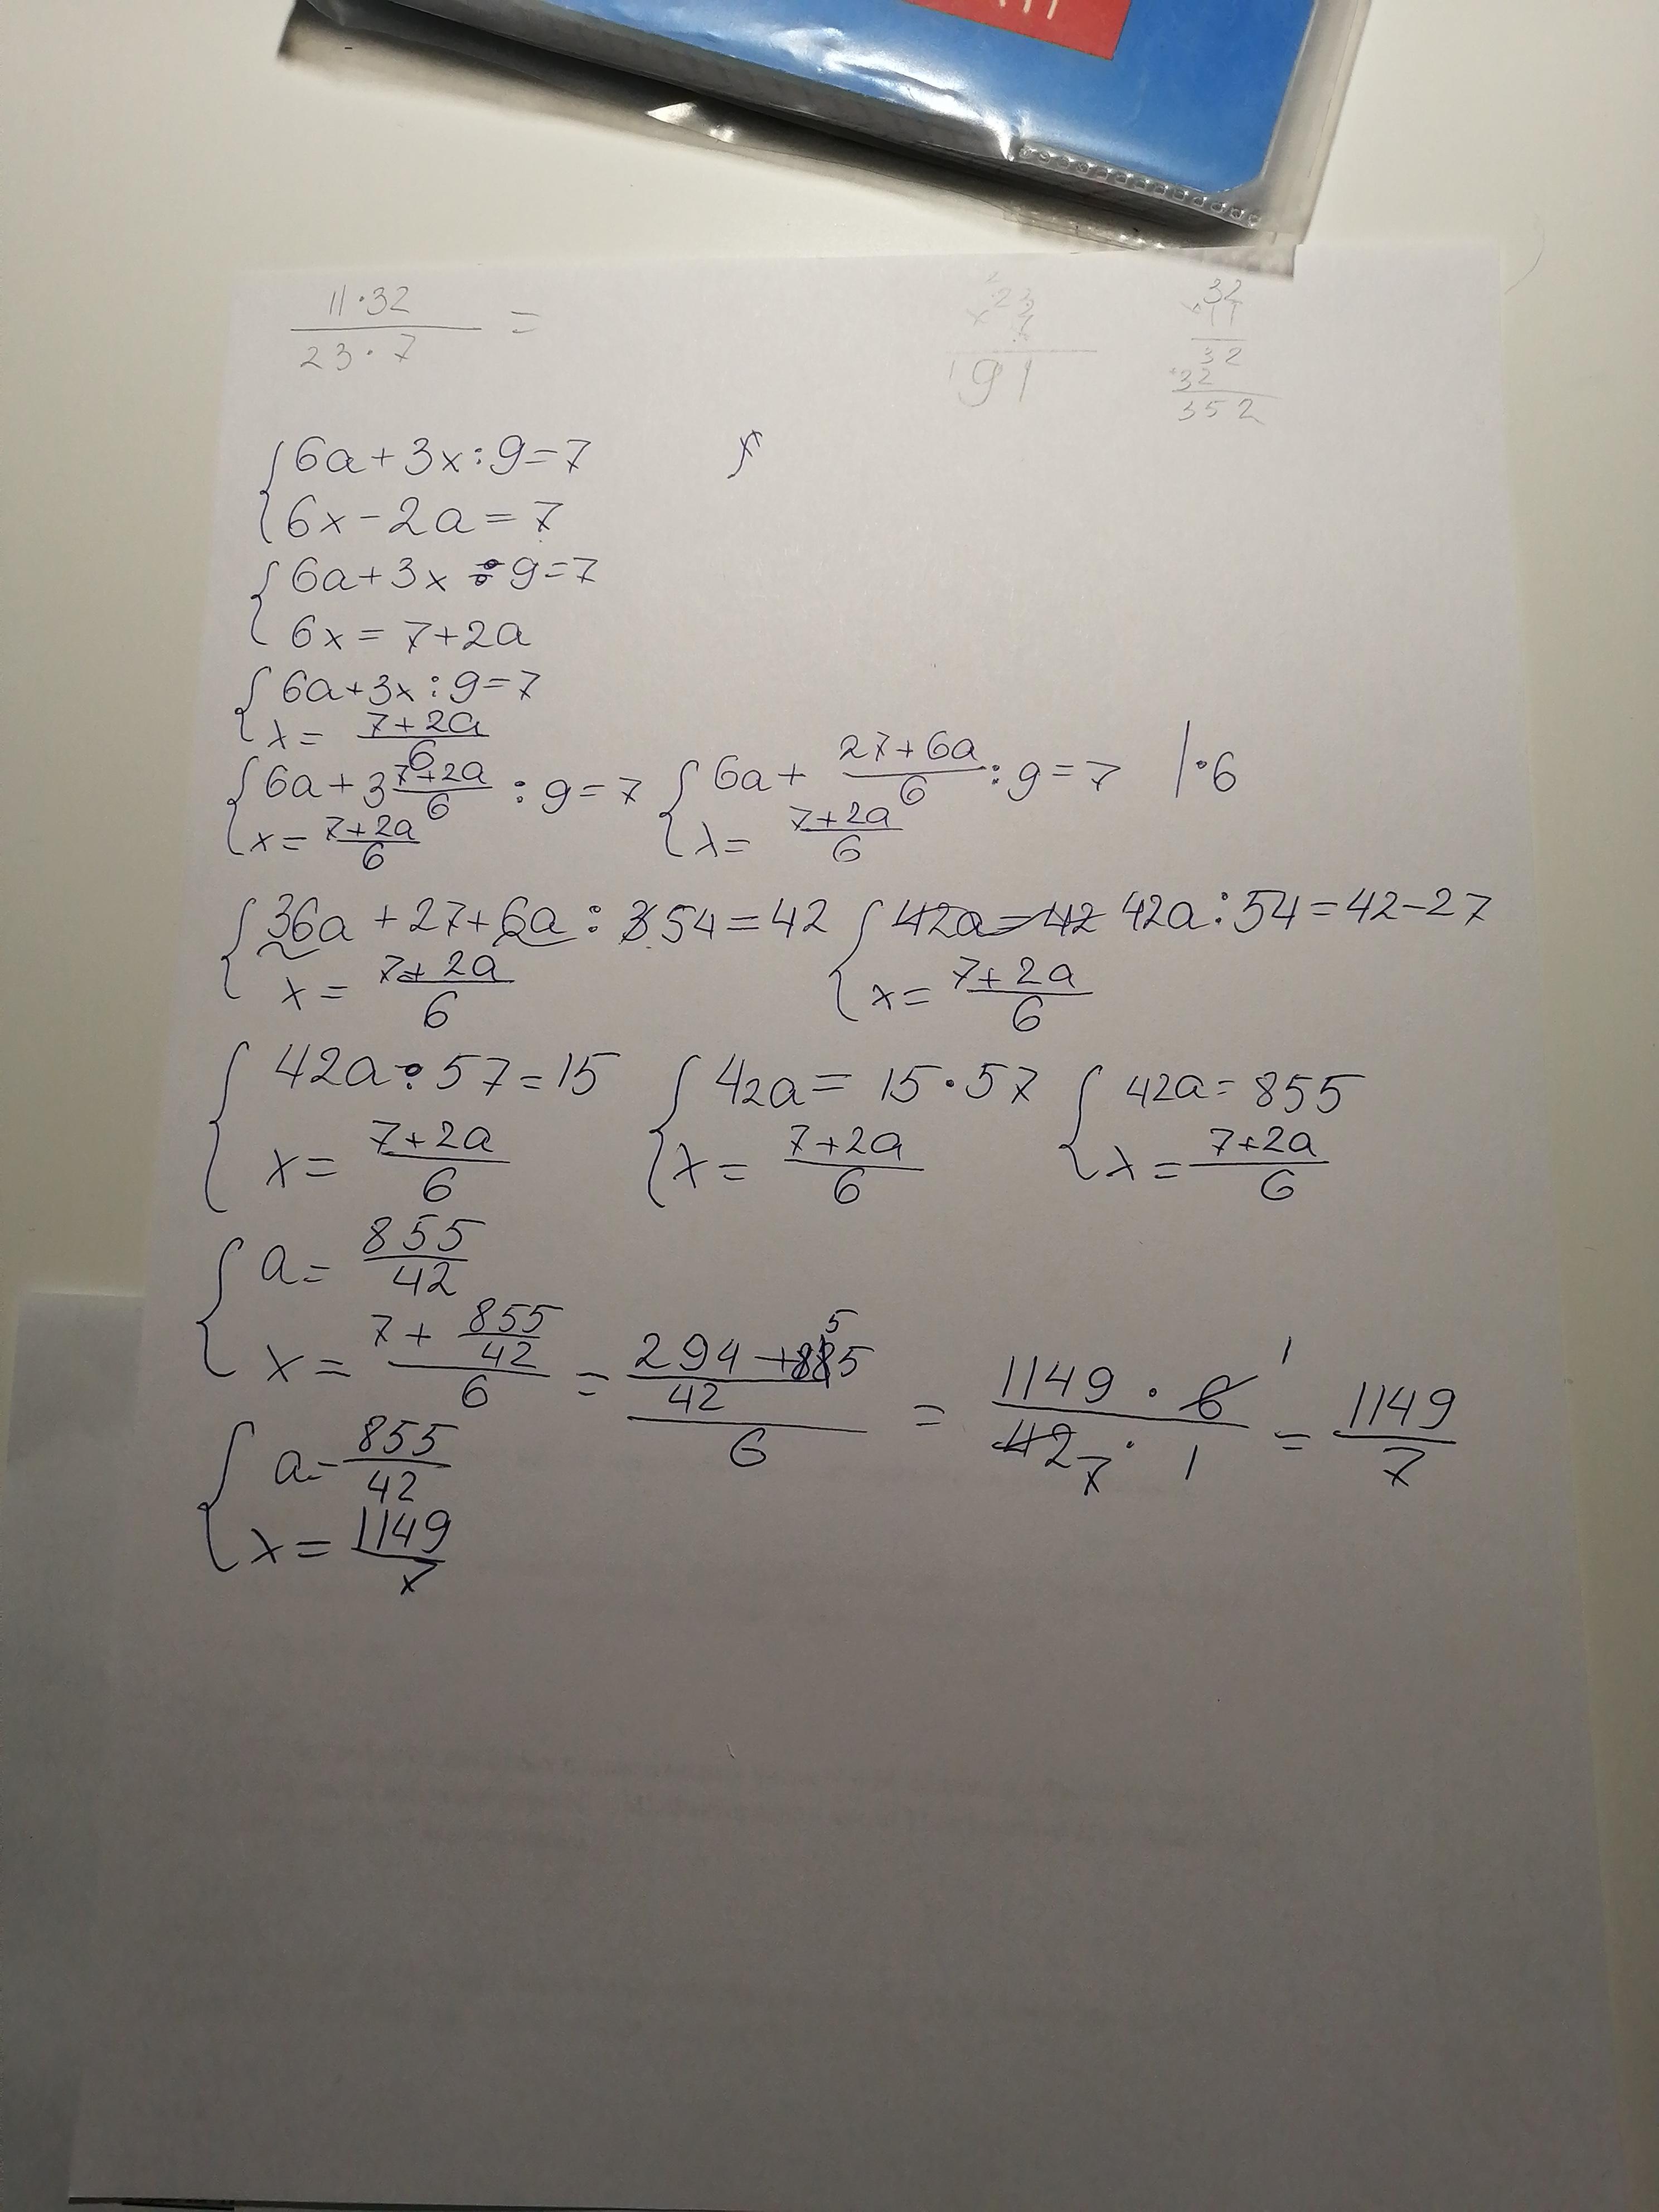 11·32 / 23·7 =
23 × 191
32 × 11
32
+32
352
{ 6a + 3x : 9 = 7
{ 6x − 2a = 7
{ 6a + 3x : 9 = 7
{ 6x = 7 + 2a
{ 6a + 3x : 9 = 7
{ x = (7+2a)/6
{ 6a + 3 (7+2a)/6 : 9 = 7 { 6a + (27+6a)/6 : 9 = 7 | ·6
{ x = (7+2a)/6 { x = (7+2a)/6
{ 36a + 27 + 6a : 54 = 42 { 42a = 42 42a : 54 = 42 − 27
{ x = (7+2a)/6 { x = (7+2a)/6
{ 42a : 57 = 15 { 42a = 15·57 { 42a = 855
{ x = (7+2a)/6 { x = (7+2a)/6 { x = (7+2a)/6
{ a = 855/42
{ x = (7 + 855/42)/6 = ((294 + 855)/42)/6 = (1149 · 6 1)/(42 7 · 1) = 1149/7
{ a = 855/42
{ x = 1149/7